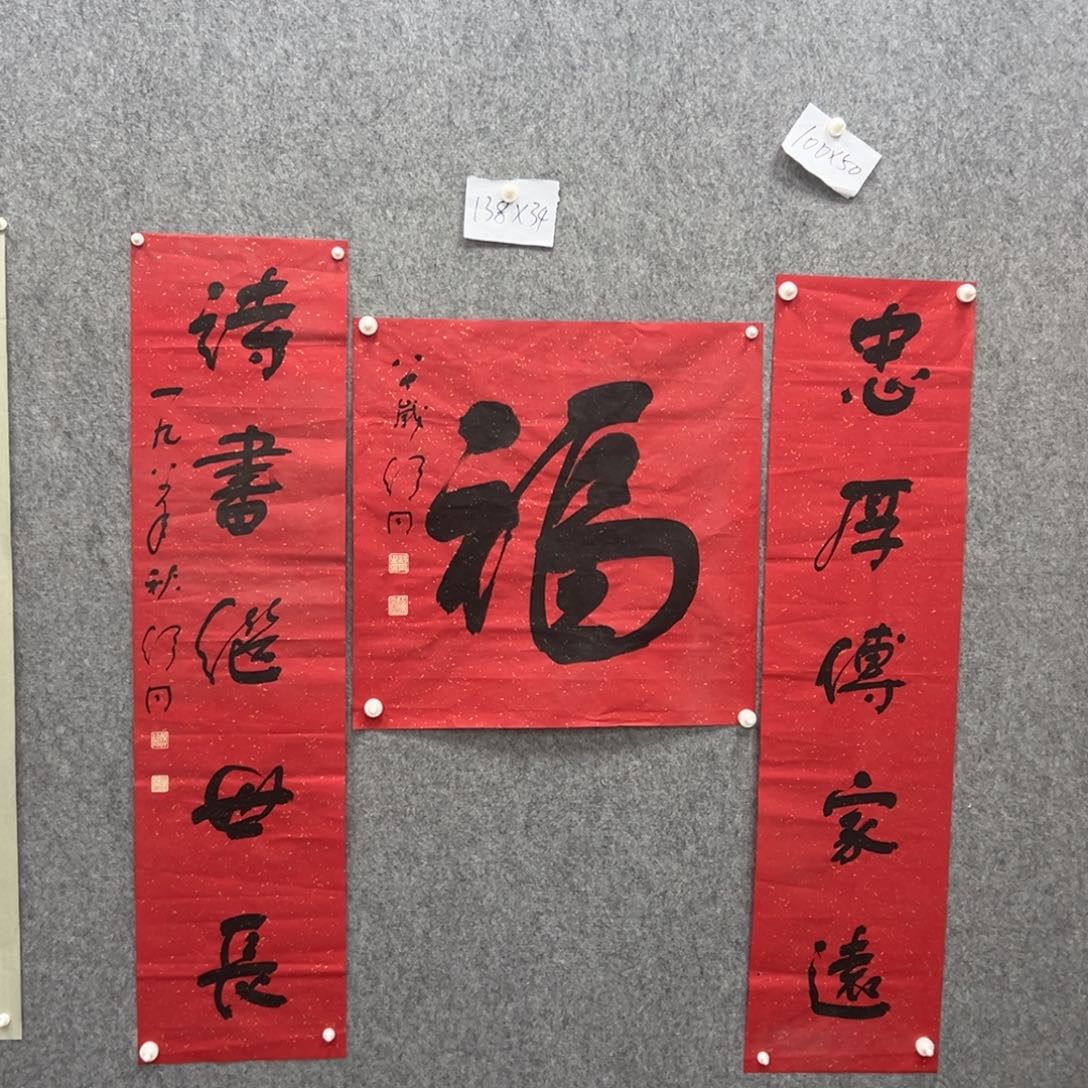 138X34
100X50
忠厚傳家遠
福
八十歲
舒同
詩書繼世長
一九八年秋
舒同